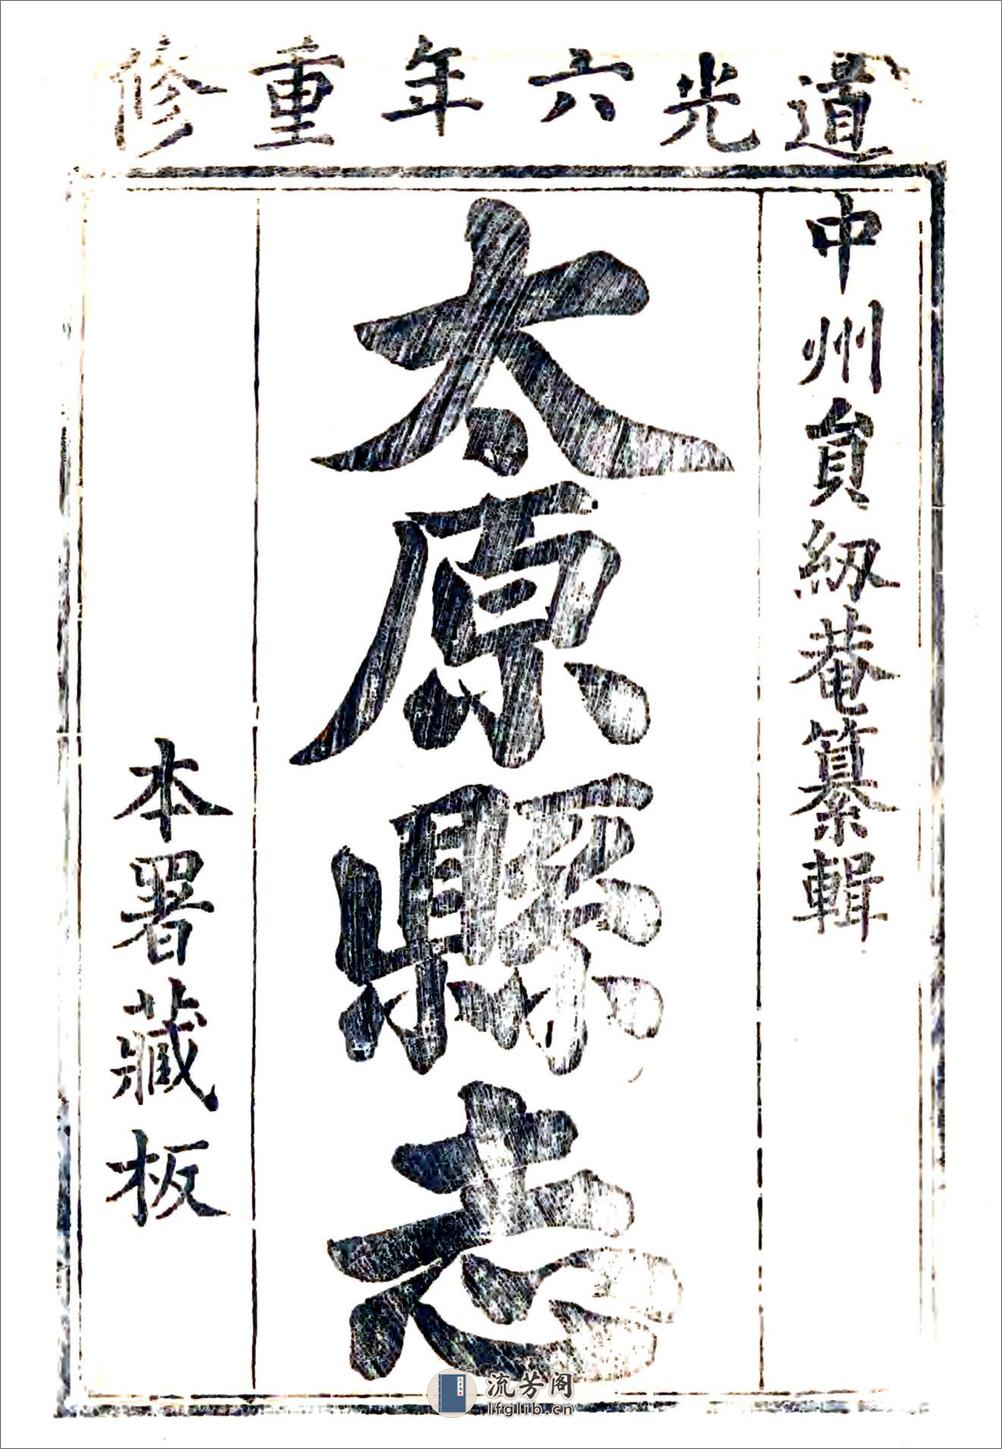 道光六年重修
中州貟紉菴纂輯
太原縣志
本署藏板
流芳阁
lfglib.cn